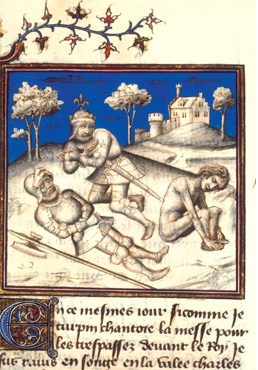 En ce mesmes iour sicomme je
turpin chantoie la messe pour
les trespassez devant le Roy Je
fus rauis en songe en la valee charles